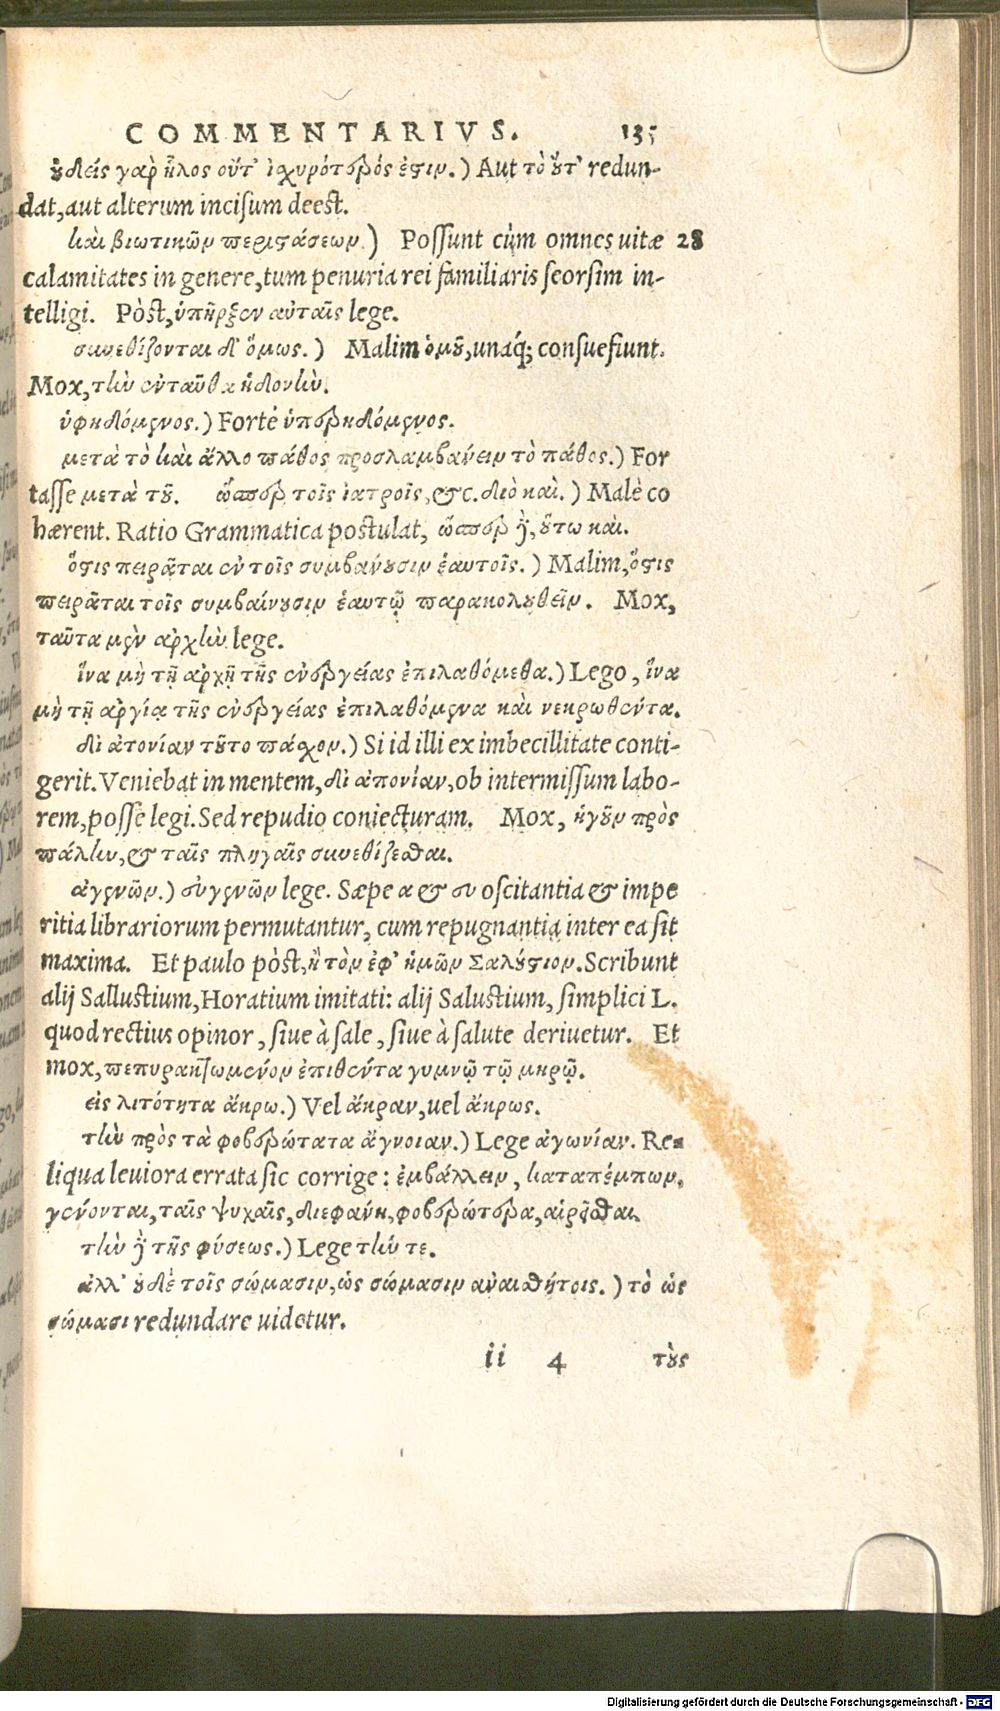 COMMENTARIVS. 135
οὐδεὶς γαρ ἧλος οὔτ' ἰσχυρότερός ἐστιν.) Aut τὸ οὔτ' redun-
dat, aut alterum incisum deest.
καὶ βιωτικῶν περιστάσεων.) Possunt cùm omnes uitæ 28
calamitates in genere, tum penuria rei familiaris seorsim in-
telligi. Pòst, ὑπῆρξεν αὐταῖς lege.
συνεθίζονται δ' ὅμως.) Malim ὁμοῦ, unaq́; consuefiunt.
Mox, τὴν ἐνταῦθα ἡδονὴν.
ὑφηδόμενος.) Fortè ὑπερηδόμενος.
μετὰ τὸ καὶ ἄλλο πάθος προσλαμβανειν τὸ πάθος.) For
tasse μετὰ τοῦ. ὥσπερ τοῖς ἰατροῖς, &c. διὸ καὶ.) Malè co
hærent. Ratio Grammatica postulat, ὥσπερ γὰρ, οὕτω καὶ.
ὅστις πειρᾶται ἐν τοῖς συμβαίνουσιν ἑαυτοῖς.) Malim, ὅστις
πειρᾶται τοῖς συμβαίνουσιν ἑαυτῷ παρακολουθεῖν. Mox,
ταῦτα μὲν ἀρχὴν lege.
ἵνα μὴ τῇ ἀρχῇ τῆς ἐνεργείας ἐπιλαθόμεθα.) Lego, ἵνα
μὴ τῇ ἀργίᾳ τῆς ἐνεργείας ἐπιλαθόμενα καὶ νεκρωθέντα.
δι ἀτονίαν τοῦτο πάσχον.) Si id illi ex imbecillitate conti-
gerit. Veniebat in mentem, δι ἀπονίαν, ob intermissum labo-
rem, posse legi. Sed repudio coniecturam. Mox, ἡγοῦν πρὸς
πάλην, & ταῖς πληγαῖς συνεθίζεσθαι.
ἀγενῶν.) συγγενῶν lege. Sæpe α & συ oscitantia & impe
ritia librariorum permutantur, cum repugnantia inter ea sit
maxima. Et paulo pòst, ἢ τὸν ἐφ' ἡμῶν Σαλούστιον. Scribunt
alij Sallustium, Horatium imitati: alij Salustium, simplici L.
quod rectius opinor, siue à sale, siue à salute deriuetur. Et
mox, πεπυρακτωμένον ἐπιθέντα γυμνῷ τῷ μηρῷ.
εἰς λιτότητα ἄκρω.) Vel ἄκραν, uel ἄκρως.
τὴν πρὸς τὰ φοβερώτατα ἄγνοιαν.) Lege ἀγωνίαν. Re-
liqua leuiora errata sic corrige: ἐμβάλλειν, καταπέμπων,
γένονται, ταῖς ψυχαῖς, διεφάνη, φοβερώτερα, αἱρεῖσθαι.
τὴν γὰρ τῆς φύσεως.) Lege τὴν τε.
ἀλλ' οὐδὲ τοῖς σώμασιν, ὡς σώμασιν ἀναισθήτοις.) τὸ ὡς
σώμασι redundare uidetur.
ii 4 τοὺς
Digitalisierung gefördert durch die Deutsche Forschungsgemeinschaft - DFG